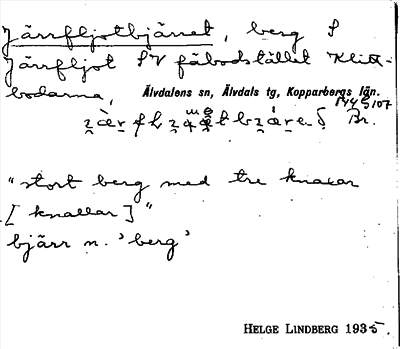 Järrfljotbjärret, berg S
Järrfljot SV fäbodstället Klitt-
bodarna, Älvdalens sn, Älvdals tg, Kopparbergs län.
Br.
"stort berg med tre knaxar
[knallar]"
bjärr n. 'berg'
HELGE LINDBERG 1935.